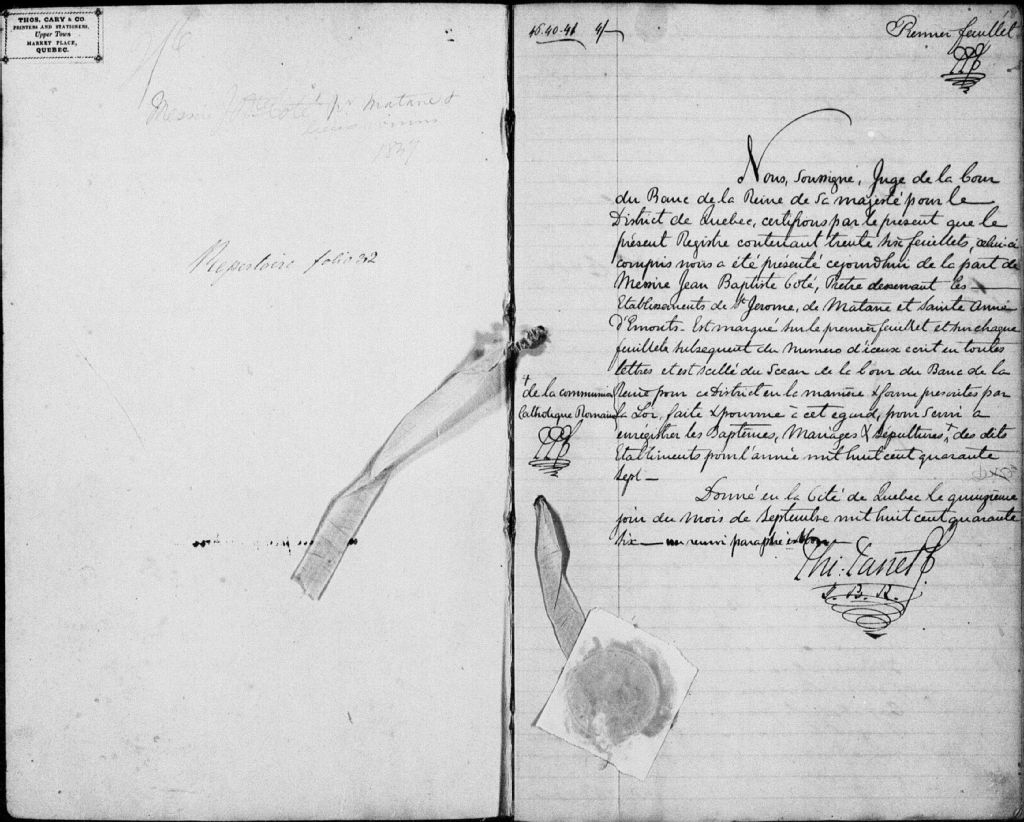 THOS. CARY & CO.
PRINTERS AND STATIONERS,
Upper Town
MARKET PLACE,
QUEBEC.
Messire J Bte Coté pr Matane &
1847
Repertoire folio 32
Premier feuillet
Nous, soussigné, Juge de la Cour
du Banc de la Reine de Sa majesté pour le
District de Quebec, certifions par le présent que le
présent Registre contenant trente six feuillets, celui ci
compris nous a été présenté cejourdhui de la part de
Messire Jean Baptiste Coté, Pretre desservant les
Etablissements de St. Jerome, de Matane et Sainte Anne
D'Emonts - Est marqué sur le premier feuillet et sur chaque
feuillets subsequent du numero d'iceux ecrit en toutes
lettres et est scellé du Sceau de la Cour du Banc de la
Reine pour ce District en la manière & forme prescrites par
la Loi, faite & pourvue à cet egard, pour servir a
enrégistrer les Baptêmes, Mariages & Sépultures, + des dits
Etabliments pour l'année mil huit cent quarante
sept —
+ de la communion
Catholique Romaine
Donné en la Cité de Quebec le quinzième
jour du mois de Septembre mil huit cent quarante
six — un renvoi paraphé est bon
J. B. R.